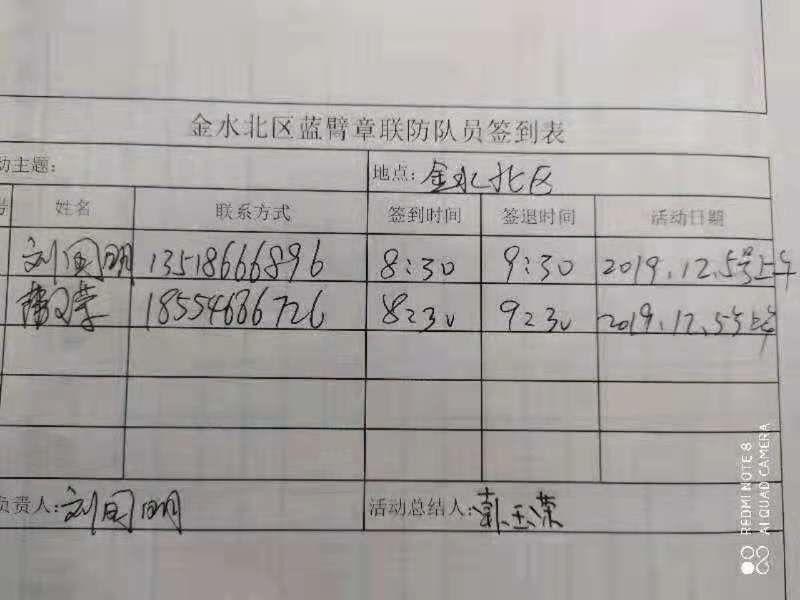 金水北区蓝臂章联防队员签到表
动主题: 地点: 金水北区
号 姓名 联系方式 签到时间 签退时间 活动日期
刘国明 13518666896 8:30 9:30 2019.12.5号上午
18554686726 8:30 9:30 2019.12.5号上午
负责人: 刘国明 活动总结人:
REDMI NOTE 8
AI QUAD CAMERA